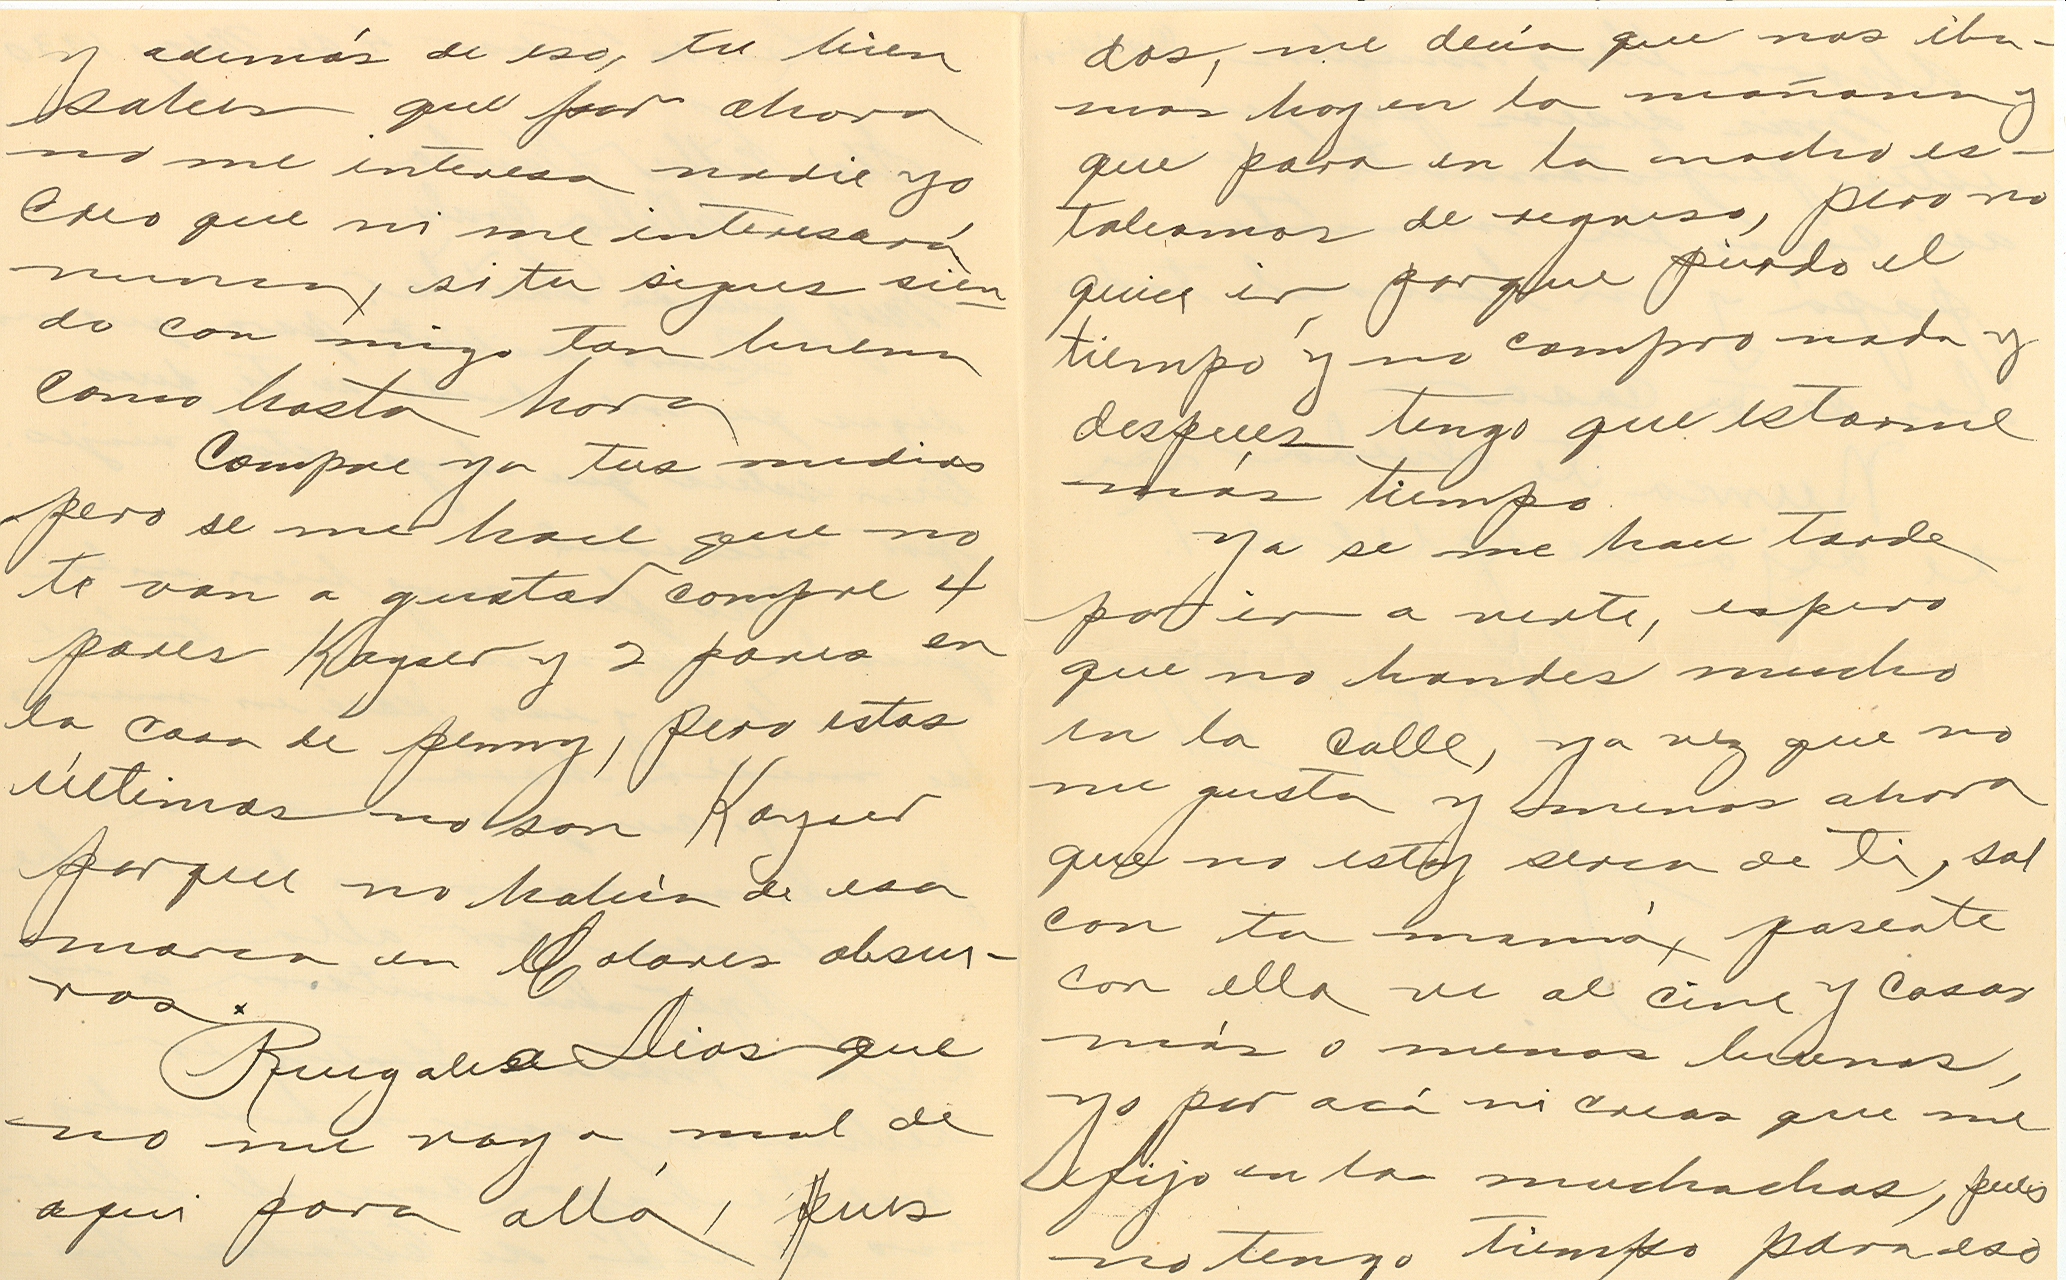 y además de eso, tu bien
sabes que por ahora
no me interesa nadie yo
creo que ni me interesará
nunca, si tu sigues sien
do con migo tan buena
como hasta hora
Compre ya tus medias
pero se me hace que no
te van a gustar compre 4
pares Kayser y 2 pares en
la casa de penny, pero estas
últimas no son Kayser
porque no había de esa
marca en Colores obscu-
ros.
Ruegale a Dios que
no me vaya mal de
aqui para allá, pues
dos, me decía que nos iba-
mos hoy en la mañana y
que para en la noche es-
tabamos de regreso, pero no
quice ir porque pierdo el
tiempo y no compro nada y
despues tengo que estarme
más tiempo
Ya se me hace tarde
por ir a verte, espero
que no handes mucho
en la calle, ya vez que no
me gusta y menos ahora
que no estoy serca de ti, sal
con tu mamá, paseate
con ella ve al cine y cosas
más o menos buenas,
yo por acá ni creas que me
fijo en las muchachas, pues
no tengo tiempo para eso